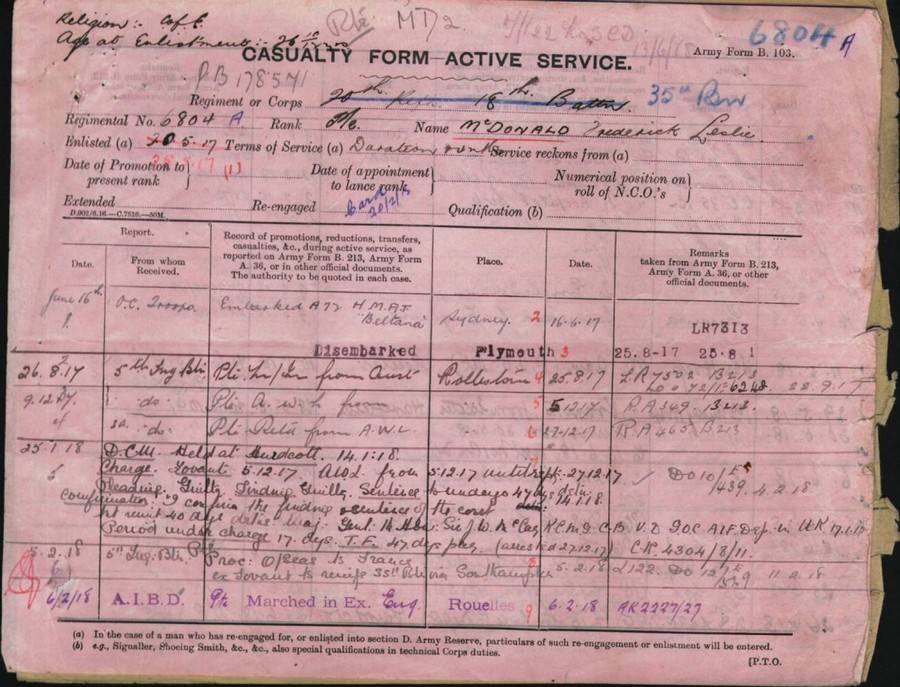 Religion :- C of E.
Rlé MT/2
6804 A
Age at Enlistment :- 26
CASUALTY FORM—ACTIVE SERVICE.
Army Form B. 103.
Regiment or Corps 20th Rfts. 18th Battn. 35th Bn
Regimental No. 6804 A Rank Pte. Name McDONALD Frederick Leslie
Enlisted (a) 5.17 Terms of Service (a) Duration Service reckons from (a)
Date of Promotion to present rank
Date of appointment to lance rank
Numerical position on roll of N.C.O.'s
Extended Re-engaged Qualification (b)
D.902/6.16.—C.7516.—50M.
20/2/18
Report.
Date.
From whom Received.
Record of promotions, reductions, transfers, casualties, &c., during active service, as reported on Army Form B. 213, Army Form A. 36, or in other official documents. The authority to be quoted in each case.
Place.
Date.
Remarks taken from Army Form B. 213, Army Form A. 36, or other official documents.
June 16th O.C. Troops. Embarked A72 H.M.A.T "Beltana" Sydney. 2 16-6-17
LR7313
Disembarked Plymouth 3 25.8-17 25.8 1
26.8.17 5th Trng Btn Pte from Aust Rollestone 4 25.8.17 LR7502 B213
9.12.17 do. Pte A.W.L. from 5 5.12.17 RA349. B213.
do. Pte Retd from A.W.L. 6 27-12-17 RA465 B213
25.1.18 D.C.M. Held at Hurdcott. 14.1.18.
Charge. Fovant 5.12.17 AWL from 5.12.17 until 27.12.17 DO10
Pleading. Guilty. Finding Guilty. Sentence to undergo 47 dys detn. 14.1.18.
Confirmation. I confirm the finding & sentence of the court
remit 40 days detn. Sir J.W. McCay K.C.M.G C.B V.D GOC AIF Dep. in UK 17.1.18
Period under charge 17 dys. T.F. 47 dys pay (arrested 27.12.17) CR 4304/8/11.
5.2.18 5th Trng. Btn. Pte Proc. O/seas to France
ex Fovant to reinfs 35th Btn via Southampton 5.2.18 L122. 11.2.18
6/2/18 A.I.B.D. Pte Marched in Ex. Eng. Rouelles 9 6.2.18 AR2227/27
(a) In the case of a man who has re-engaged for, or enlisted into section D. Army Reserve, particulars of such re-engagement or enlistment will be entered.
(b) e.g., Signaller, Shoeing Smith, &c., &c., also special qualifications in technical Corps duties.
[P.T.O.